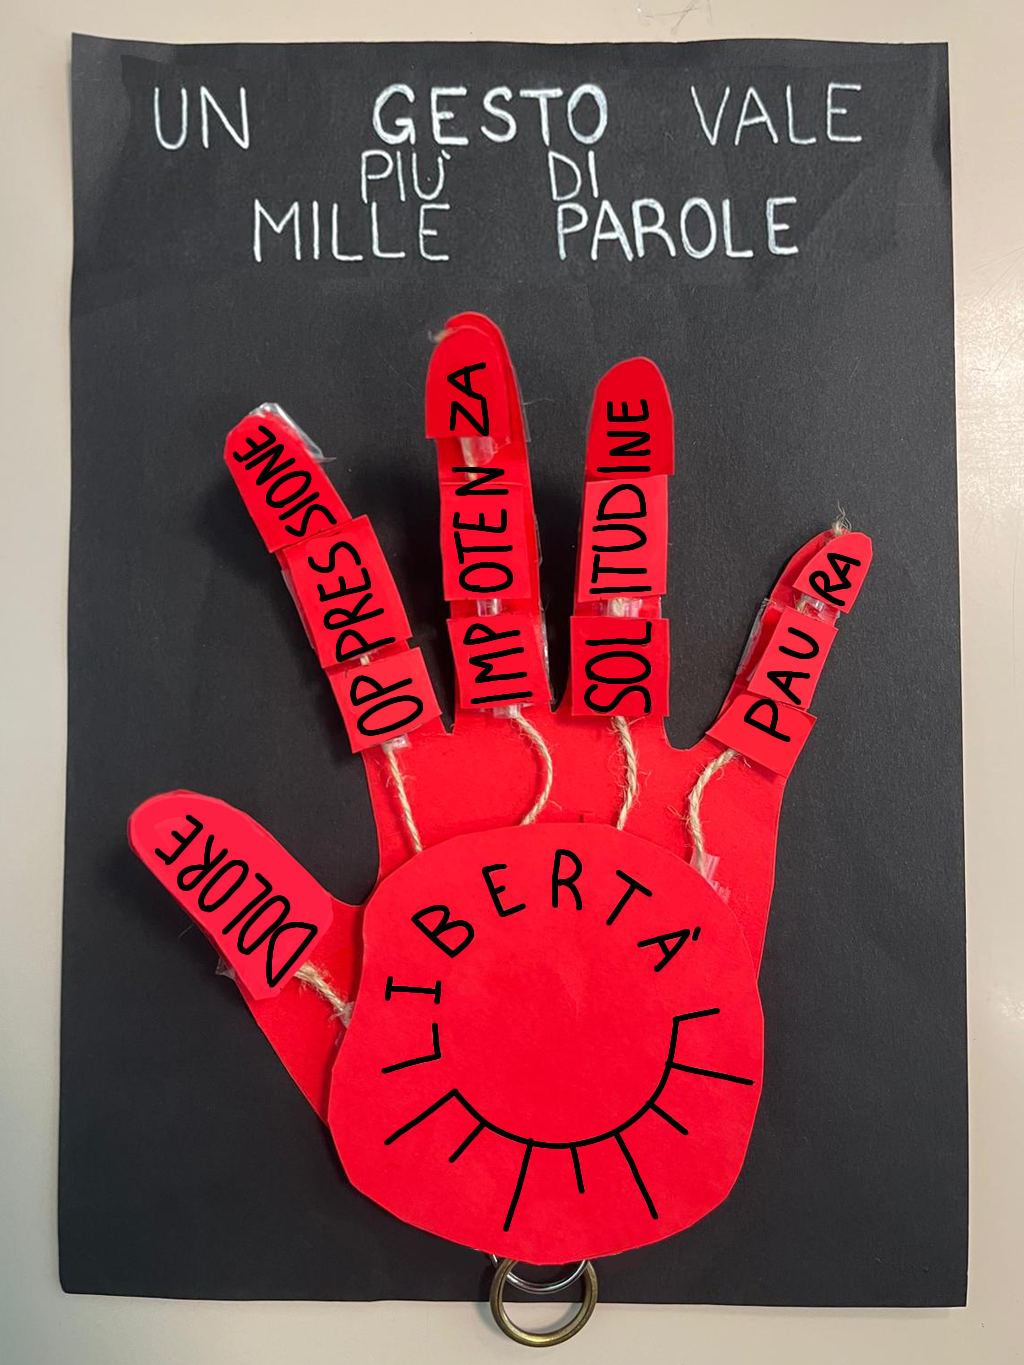 UN GESTO VALE
PIÙ DI
MILLE PAROLE
DOLORE
OPPRESSIONE
IMPOTENZA
SOLITUDINE
PAURA
LIBERTÀ